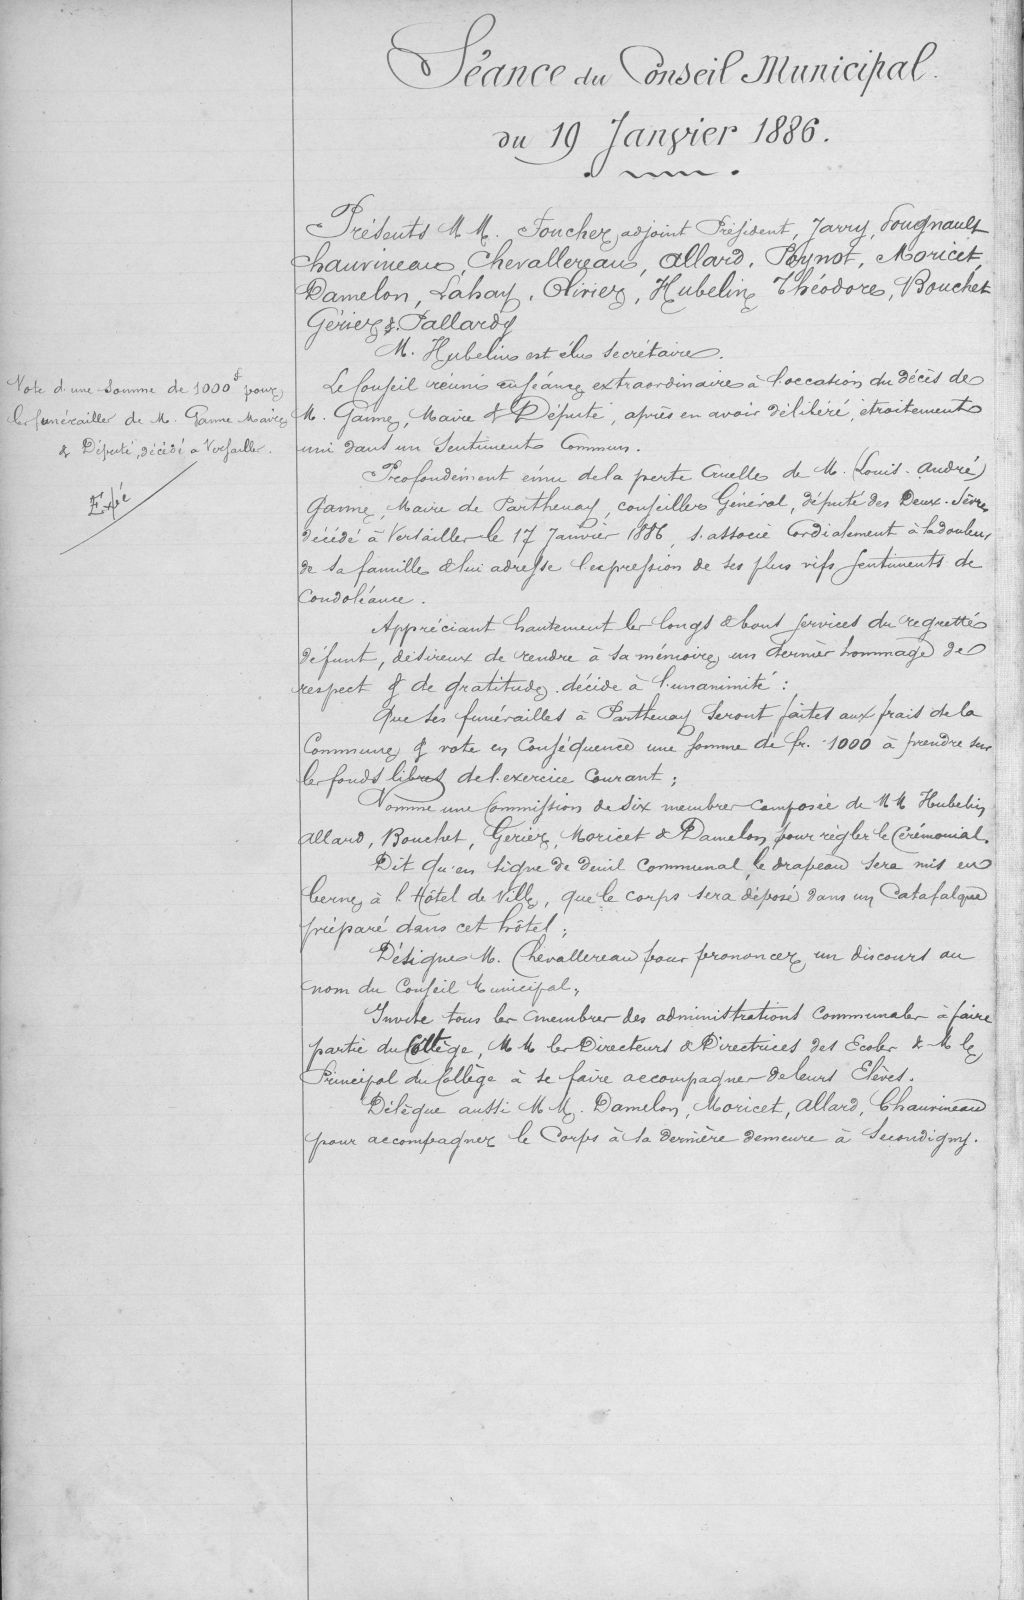 Séance du Conseil Municipal.
du 19 Janvier 1886.
Présents M M. Foucher, adjoint Président, Jarry, Fougnault
Chauvineau, Chevallereau, Allard, Poynot, Moricet,
Damelon, Lahay, Olivier, Hubelin Théodore, Bouchet
Gérier & Pallardy
M. Hubelin est élu secrétaire.
Vote d'une somme de 1000f pour
les funérailles de M. Ganne Maire
& Député, décédé à Versailles.
Expé
Le Conseil réuni en séance extraordinaire à l'occation du décès de
M. Ganne, Maire & Député, après en avoir délibéré, étroitement
uni dans un sentiment commun.
Profondément ému de la perte cruelle de M. (Louis-André)
Ganne, Maire de Parthenay, conseiller Général, député des Deux-Sèvres
décédé à Versailles le 17 Janvier 1886, s'associe cordialement à la douleur
de sa famille & lui adresse l'expression de ses plus vifs sentiments de
condoléance.
Appréciant hautement les longs & bons services du regretté
défunt, désireux de rendre à sa mémoire un dernier hommage de
respect & de gratitude, décide à l'unanimité :
Que ses funérailles à Parthenay seront faites aux frais de la
Commune & vote en conséquence une somme de fr. 1000 à prendre sur
les fonds libres de l'exercice courant ;
Nomme une Commission de six membres composée de M M Hubelin
Allard, Bouchet, Gerier, Moricet & Damelon pour règler le Cérémonial.
Dit qu'en signe de deuil communal, le drapeau sera mis en
berne à l'Hôtel de Ville, que le corps sera déposé dans un Catafalque
préparé dans cet hôtel ;
Désigne M. Chevallereau pour prononcer un discours au
nom du Conseil Municipal ;
Invite tous les membres des administrations communales à faire
partie du Cortège, M M les Directeurs & Directrices des Ecoles & M le
Principal du Collège à se faire accompagner de leurs Elèves.
Délègue aussi M M. Damelon, Moricet, Allard, Chauvineau
pour accompagner le Corps à sa dernière demeure à Secondigny.